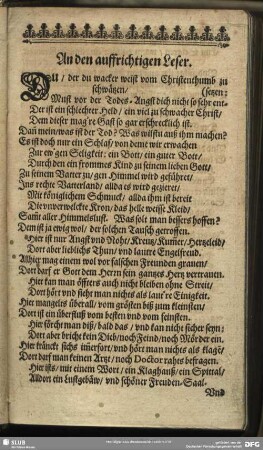 An den auffrichtigen Leser.
DU / der du wacker weist vom Christenthumb zu
schwätzen / (setzen:
Must vor der Todes-Angst dich nicht so sehr ent-
Der ist ein schlechter Held / ein viel zu schwacher Christ /
Dem dieser mag're Gast so gar erschrecklich ist.
Dañ mein / was ist der Tod? Was wilstu auß ihm machen?
Es ist doch nur ein Schlaf / von deme wir erwachen
Zur ew'gen Seligkeit: ein Bott / ein guter Bott /
Durch den ein frommes Kind zu seinem lieben Gott /
Zu seinem Vatter zu / gen Himmel wird geführet /
Ins rechte Vatterland / allda es wird gezieret /
Mit königlichem Schmuck / allda ihm ist bereit
Die unverwelckte Kron / das helle weisse Kleid /
Samt aller Himmelslust. Was solt man bessers hoffen?
Dem ist ja ewig wol / der solchen Tausch getroffen.
Hier ist nur Angst und Noht / Kreutz / Kum̃er / Hertzeleid /
Dort aber lieblichs Thun / und lautre Engelfreud.
Allhier mag einem wol vor falschen Freunden grauen /
Dort darf er Gott dem Herrn sein gantzes Hertz vertrauen.
Hier kan man öffters auch nicht bleiben ohne Streit /
Dort hört und sieht man nichts als laut're Einigkeit.
Hier mangelts überall / vom grösten biß zum kleinsten /
Dort ist ein überfluß vom besten und vom feinsten.
Hier förcht man diß / bald das / und kan nicht sicher seyn:
Dort aber bricht kein Dieb / noch Feind / noch Mörder ein.
Hier kränckt sichs im̃erfort / und hört man nichts als klagē /
Dort darf man keinen Artzt / noch Doctor rahts befragen.
Hier ists / mit einem Wort / ein Klaghauß / ein Spittal /
Aldort ein Lustgebäw / und schöner Freuden-Saal.
Und
SLUB
DFG